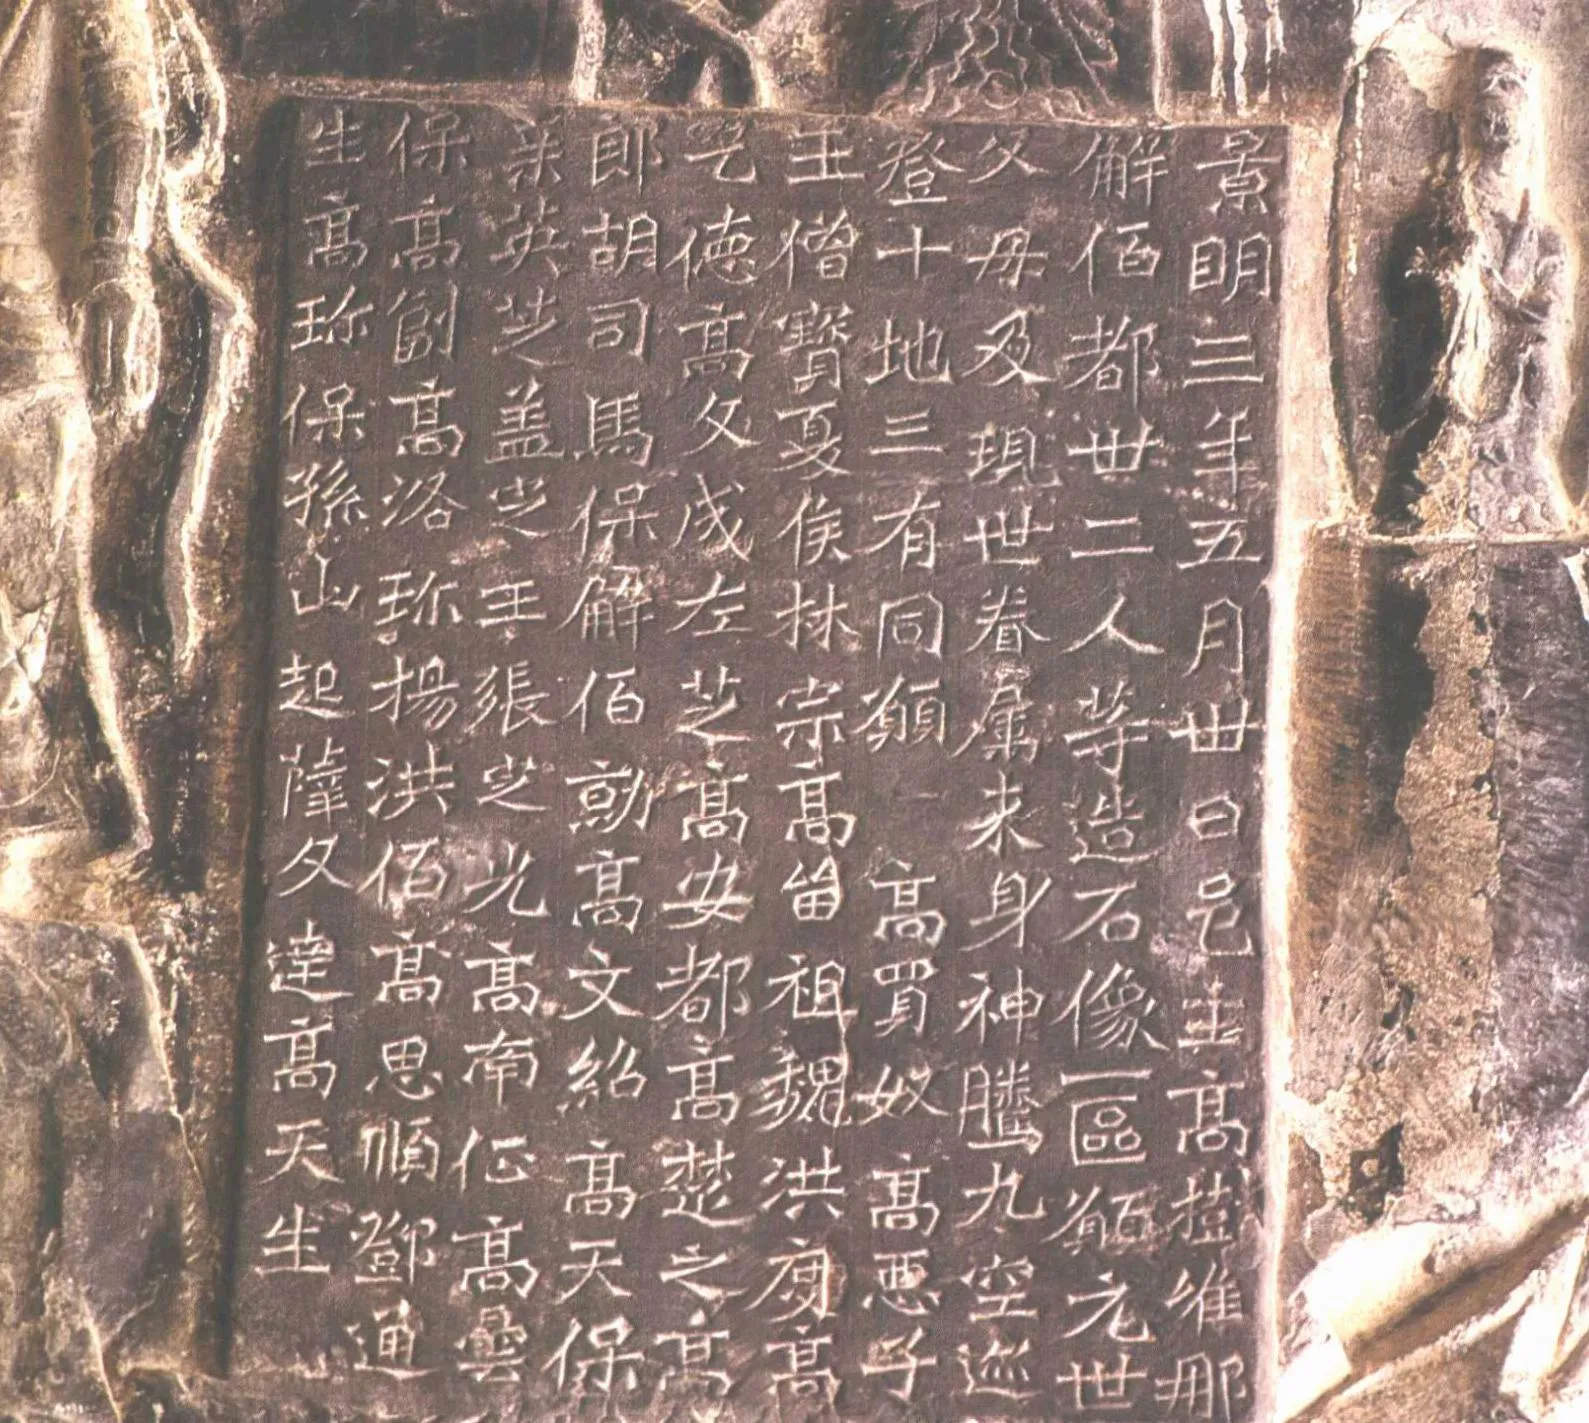 景明三年五月卅日邑主高樹維那
解佰都卅二人等造石像一區願元世
父母及現世眷屬来身神騰九空迊
登十地三有同願 高買奴高惡子
王僧寶夏侯林宗高留祖魏洪度高
乞德高文成左芝高安都高楚之高
郎胡司馬保解佰勍高文紹高天保
英芝盖定王張定光高南伾高曇
保高創高洛珎楊洪佰高思順鄧通
生高珎保孫山起薩文達高天生